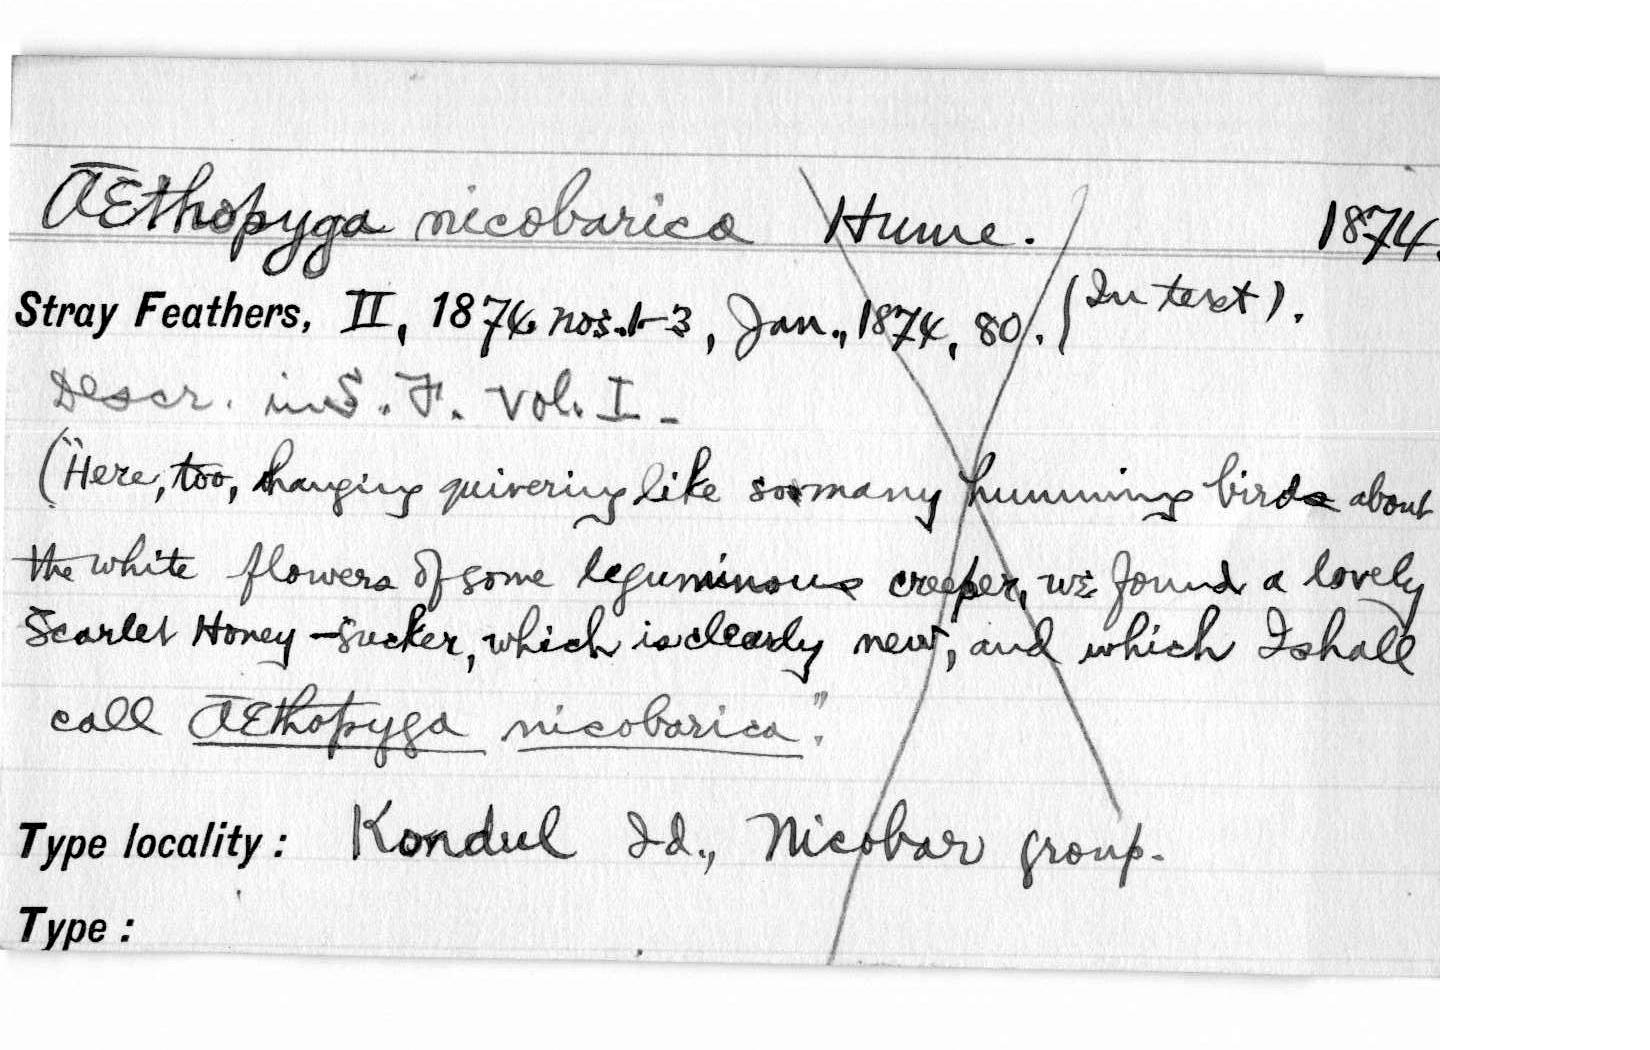 Æthopyga nicobarica Hume. 1874.
Stray Feathers, II, 1874 nos. 1-3, Jan., 1874, 80. (In text).
Descr. in S. F. Vol. I -
("Here, too, hanging quivering like so many humming birds about
the white flowers of some leguminous creeper, we found a lovely
Scarlet Honey-sucker, which is clearly new, and which I shall
call Æthopyga nicobarica".
Type locality: Kondul Id., Nicobar group.
Type: